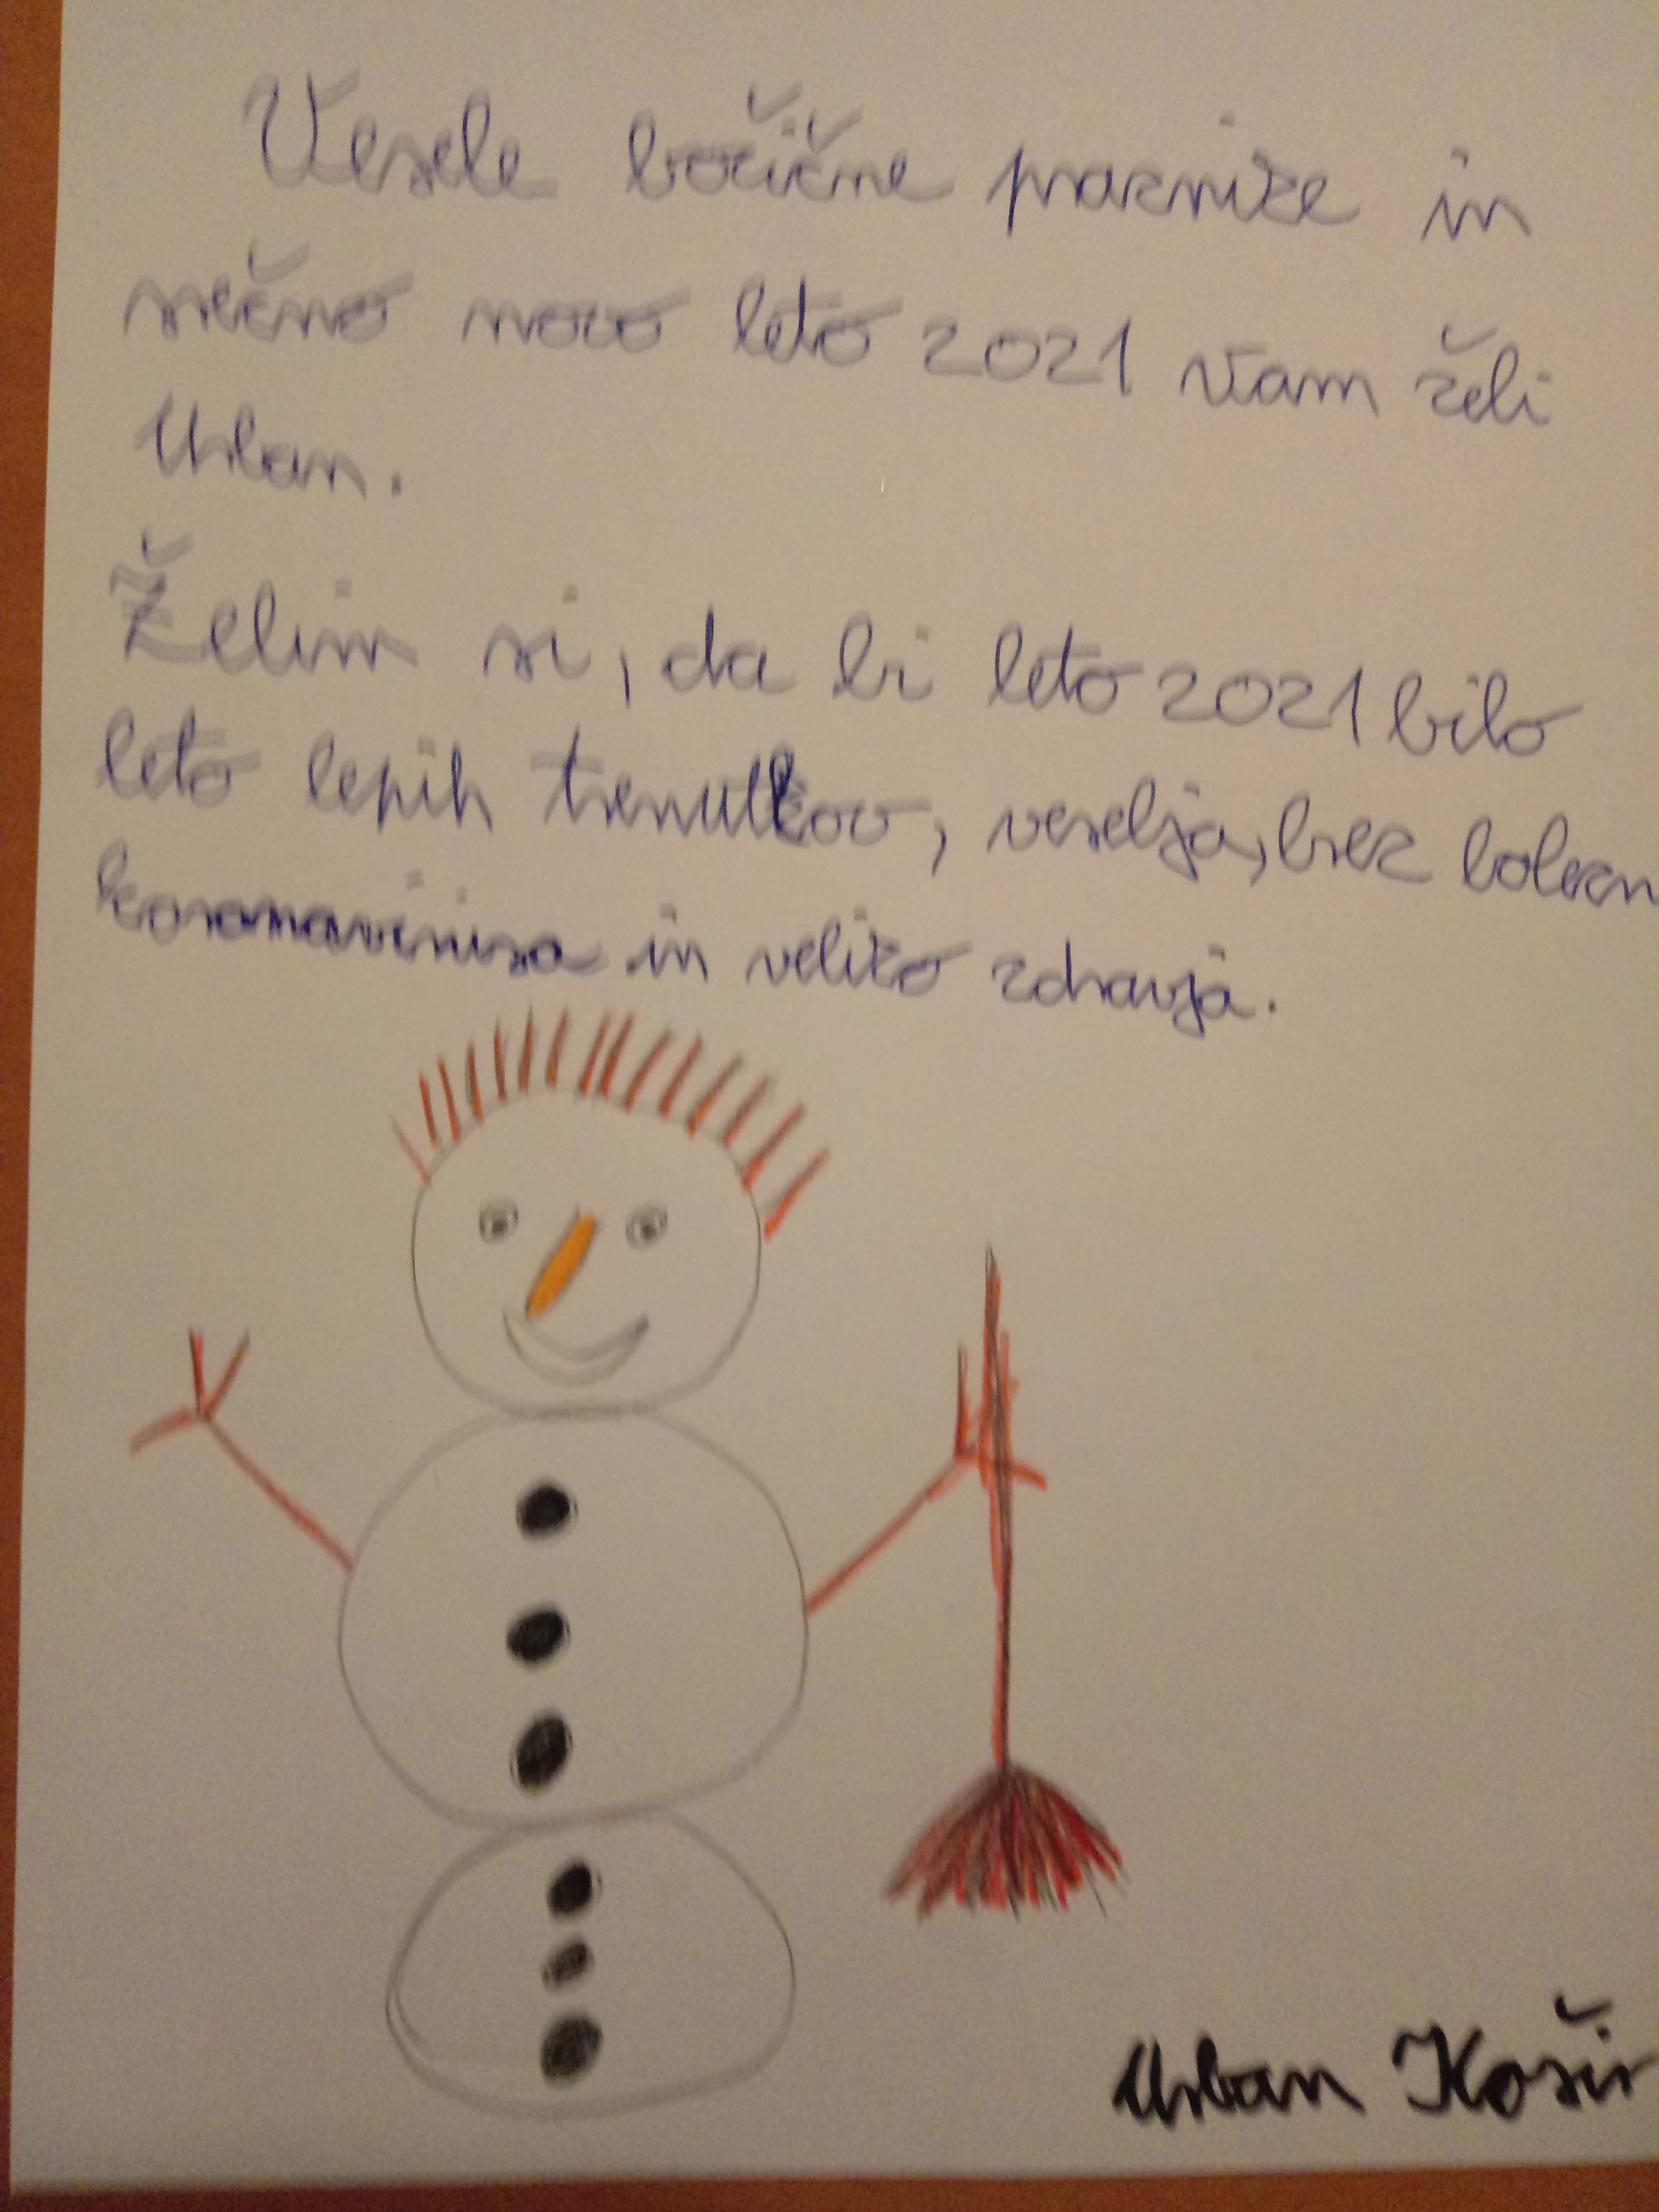 Vesele božične praznike in
srečno novo leto 2021 vam želi
Urban.
Želim si, da bi leto 2021 bilo
leto lepih trenutkov, veselja, brez bolezn
koronavirusa in veliko zdravja.
Urban Košir